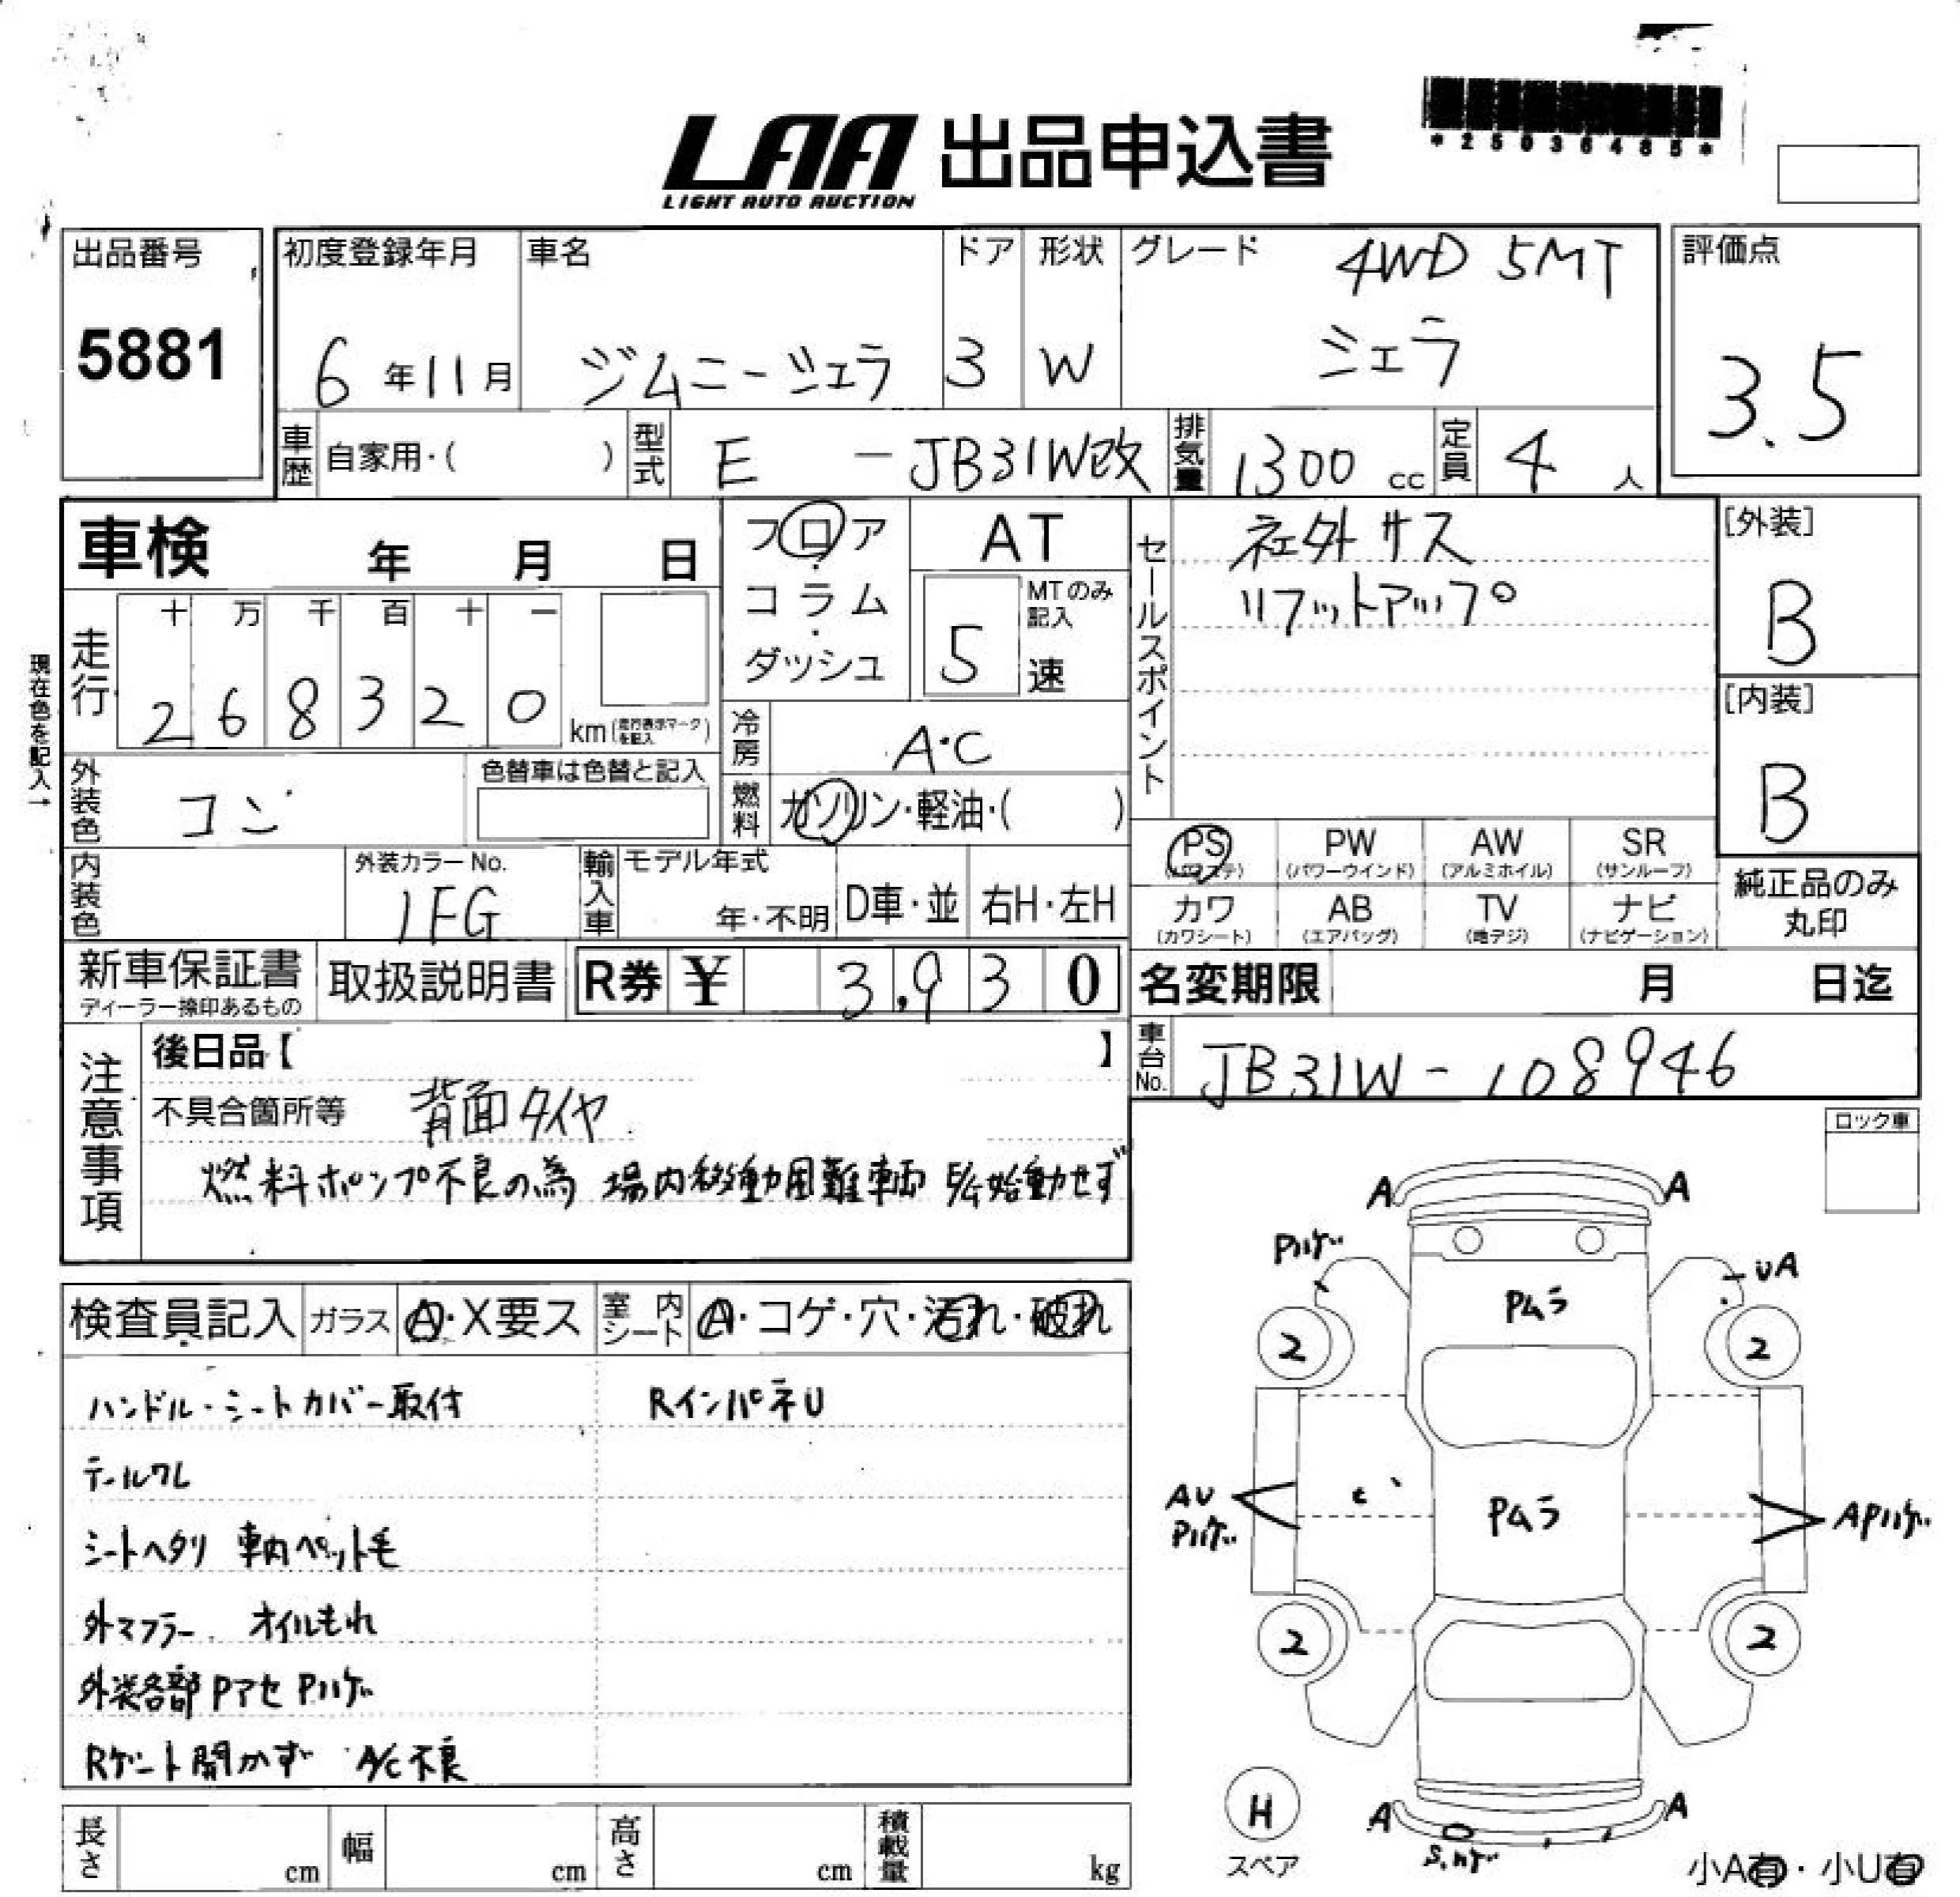 LAA 出品申込書
LIGHT AUTO AUCTION
*25036485*
出品番号
5881
初度登録年月
6年11月
車名
ジムニーシエラ
ドア
3
形状
W
グレード
4WD 5MT
シエラ
評価点
3.5
車歴
自家用・( )
型式
E - JB31W改
排気量
1300 cc
定員
4 人
車検 年 月 日
フロア・コラム・ダッシュ
AT
MTのみ記入
5 速
セールスポイント
社外サス
リフットアップ
[外装]
B
[内装]
B
現在色を記入→
走行
十 万 千 百 十 一
2 6 8 3 2 0
km (走行表示マークを記入)
冷房
A・C
燃料
ガソリン・軽油・( )
外装色
コン
色替車は色替と記入
内装色
外装カラーNo.
1FG
輸入車
モデル年式
年・不明
D車・並
右H・左H
PS (パワステ)
PW (パワーウインド)
AW (アルミホイル)
SR (サンルーフ)
カワ (カワシート)
AB (エアバッグ)
TV (地デジ)
ナビ (ナビゲーション)
純正品のみ丸印
新車保証書
ディーラー捺印あるもの
取扱説明書
R券 ¥ 3,930
名変期限 月 日迄
車台No.
JB31W-108946
注意事項
後日品【 】
不具合箇所等 背面タイヤ
燃料ポンプ不良の為 場内移動困難車両 E/G始動せず
ロック車
検査員記入
ガラス A・X要ス
室内シート A・コゲ・穴・汚れ・破れ
ハンドル・シートカバー取付
RインパネU
テールワレ
シートヘタリ 車内ペット毛
外マフラー オイルもれ
外装各部Pアセ Pハゲ
Rゲート開かず A/C不良
A A
Pハゲ
UA
Pムラ
2 2
AU
Pハゲ
Pムラ
APハゲ
2 2
H
スペア
A A
S.ハゲ
小A有・小U有
長さ cm
幅 cm
高さ cm
積載量 kg